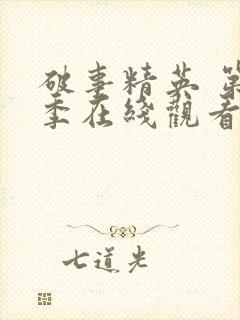 破事精英 第
季在綫觀看
七道光